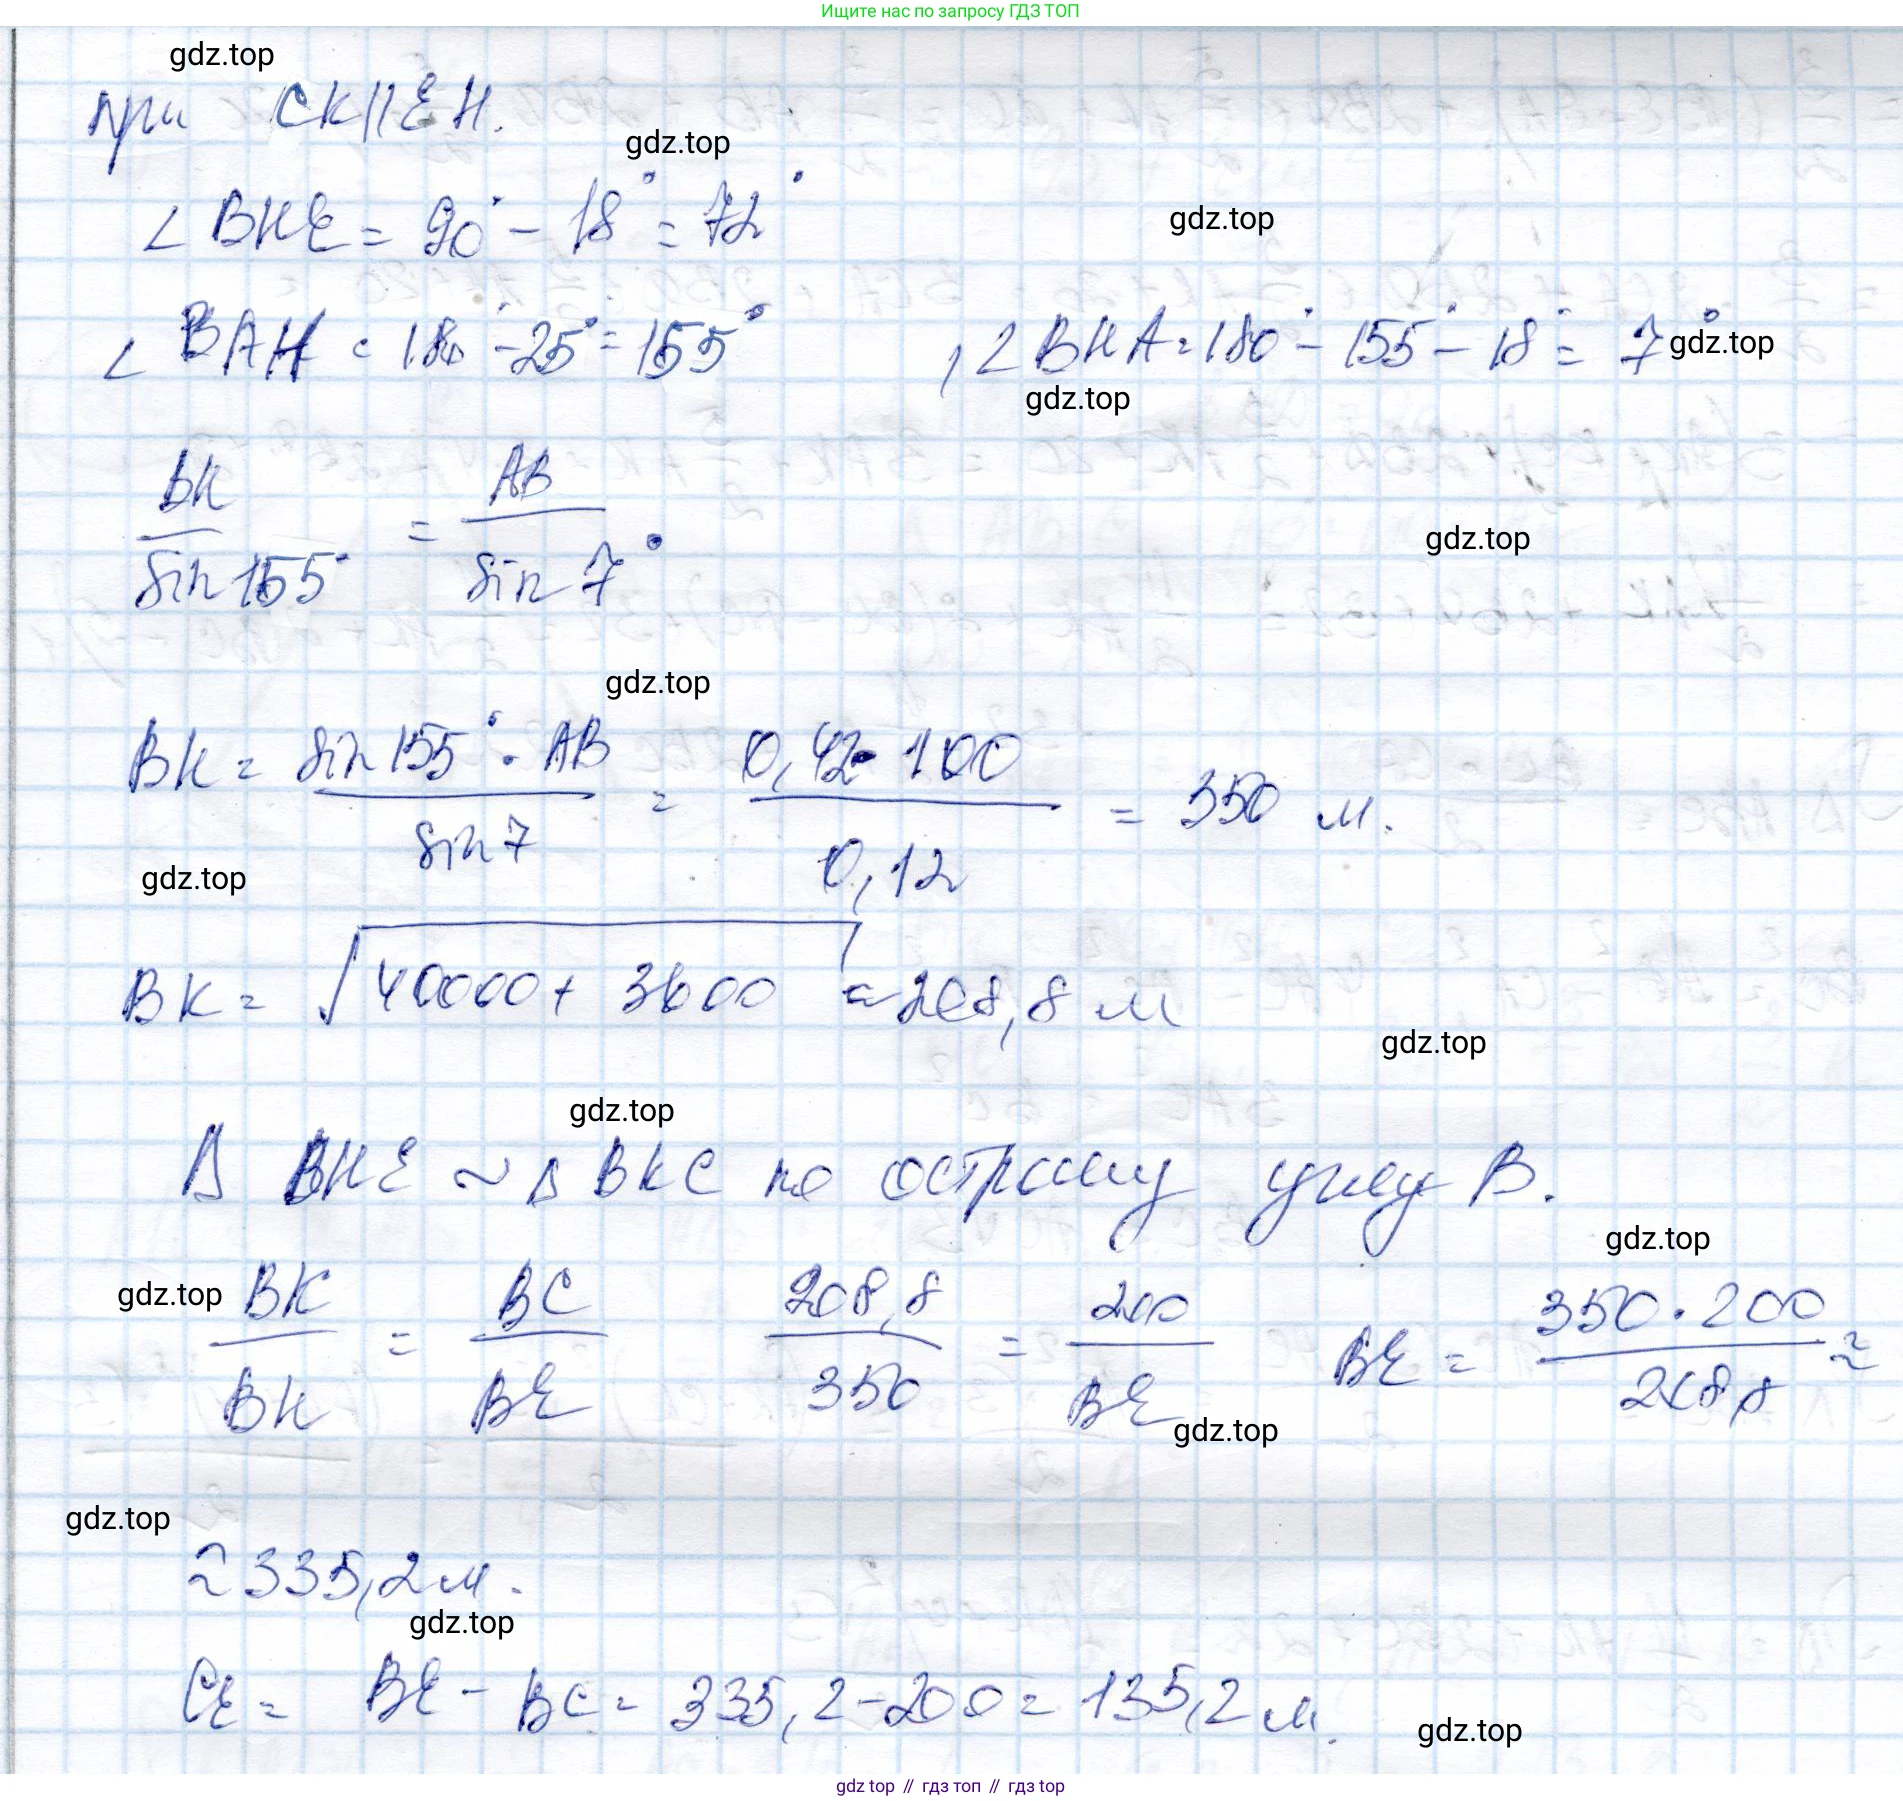 Ищите нас по запросу ГДЗ ТОП
gdz.top
при CK || EH.
gdz.top
∠ BHE = 90° - 18° = 72°
gdz.top
∠ BAH = 180° - 25° = 155°, ∠ BHA = 180° - 155° - 18° = 7°
gdz.top
gdz.top
BH / sin 155° = AB / sin 7°
gdz.top
gdz.top
BH = sin 155° · AB / sin 7 = 0,42 · 100 / 0,12 = 350 м.
gdz.top
BK = √(40000 + 3600) = 208,8 м
gdz.top
gdz.top
Δ BHE ~ Δ BKC по острому углу B.
gdz.top
gdz.top
BK / BH = BC / BE 208,8 / 350 = 200 / BE BE = 350 · 200 / 208,8 ≈
gdz.top
gdz.top
≈ 335,2 м.
gdz.top
CE = BE - BC = 335,2 - 200 = 135,2 м.
gdz.top
gdz top // гдз топ // гдз top